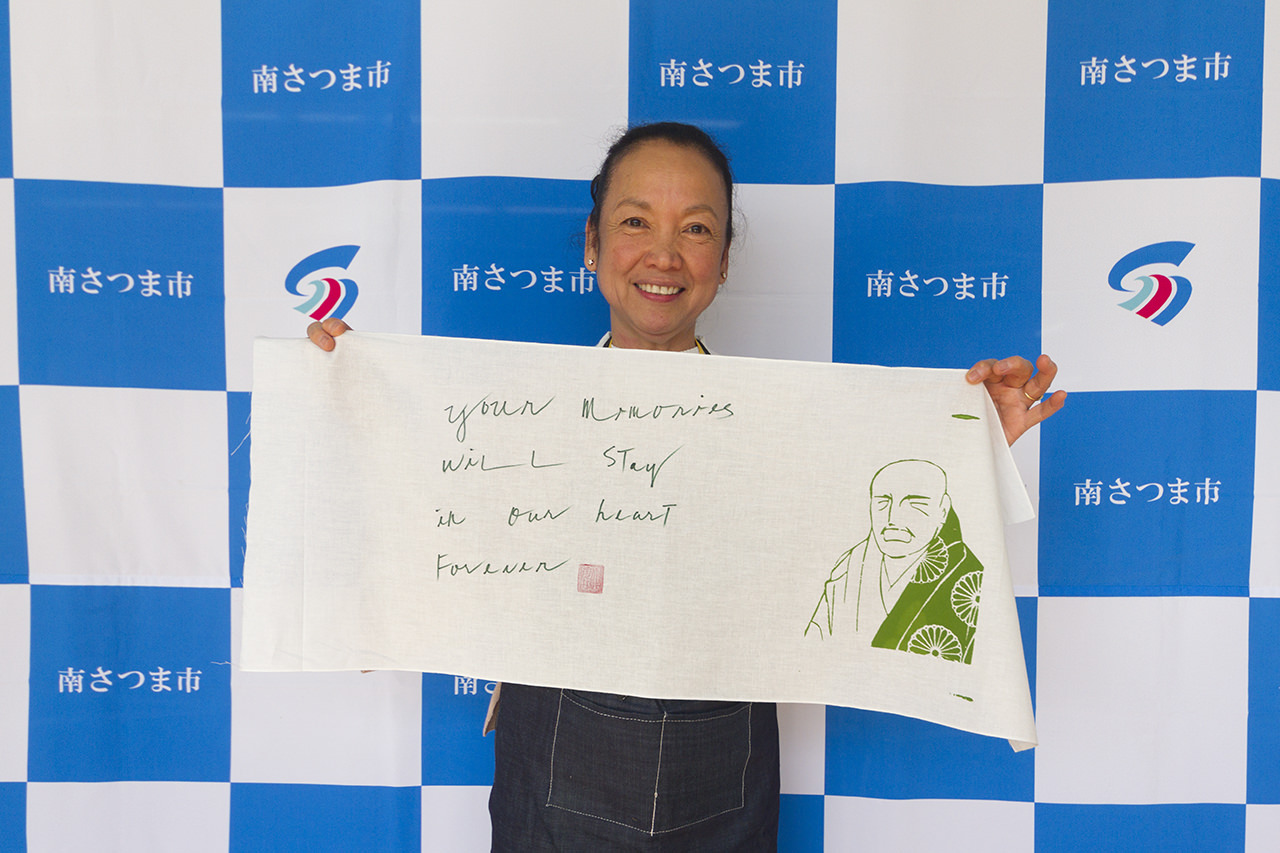 南さつま市
南さつま市
南さつま市
南さつま市
南さつま市
南さつま市
your Memories
will stay
in our heart
Forever
南さつま市
南さつま市
南